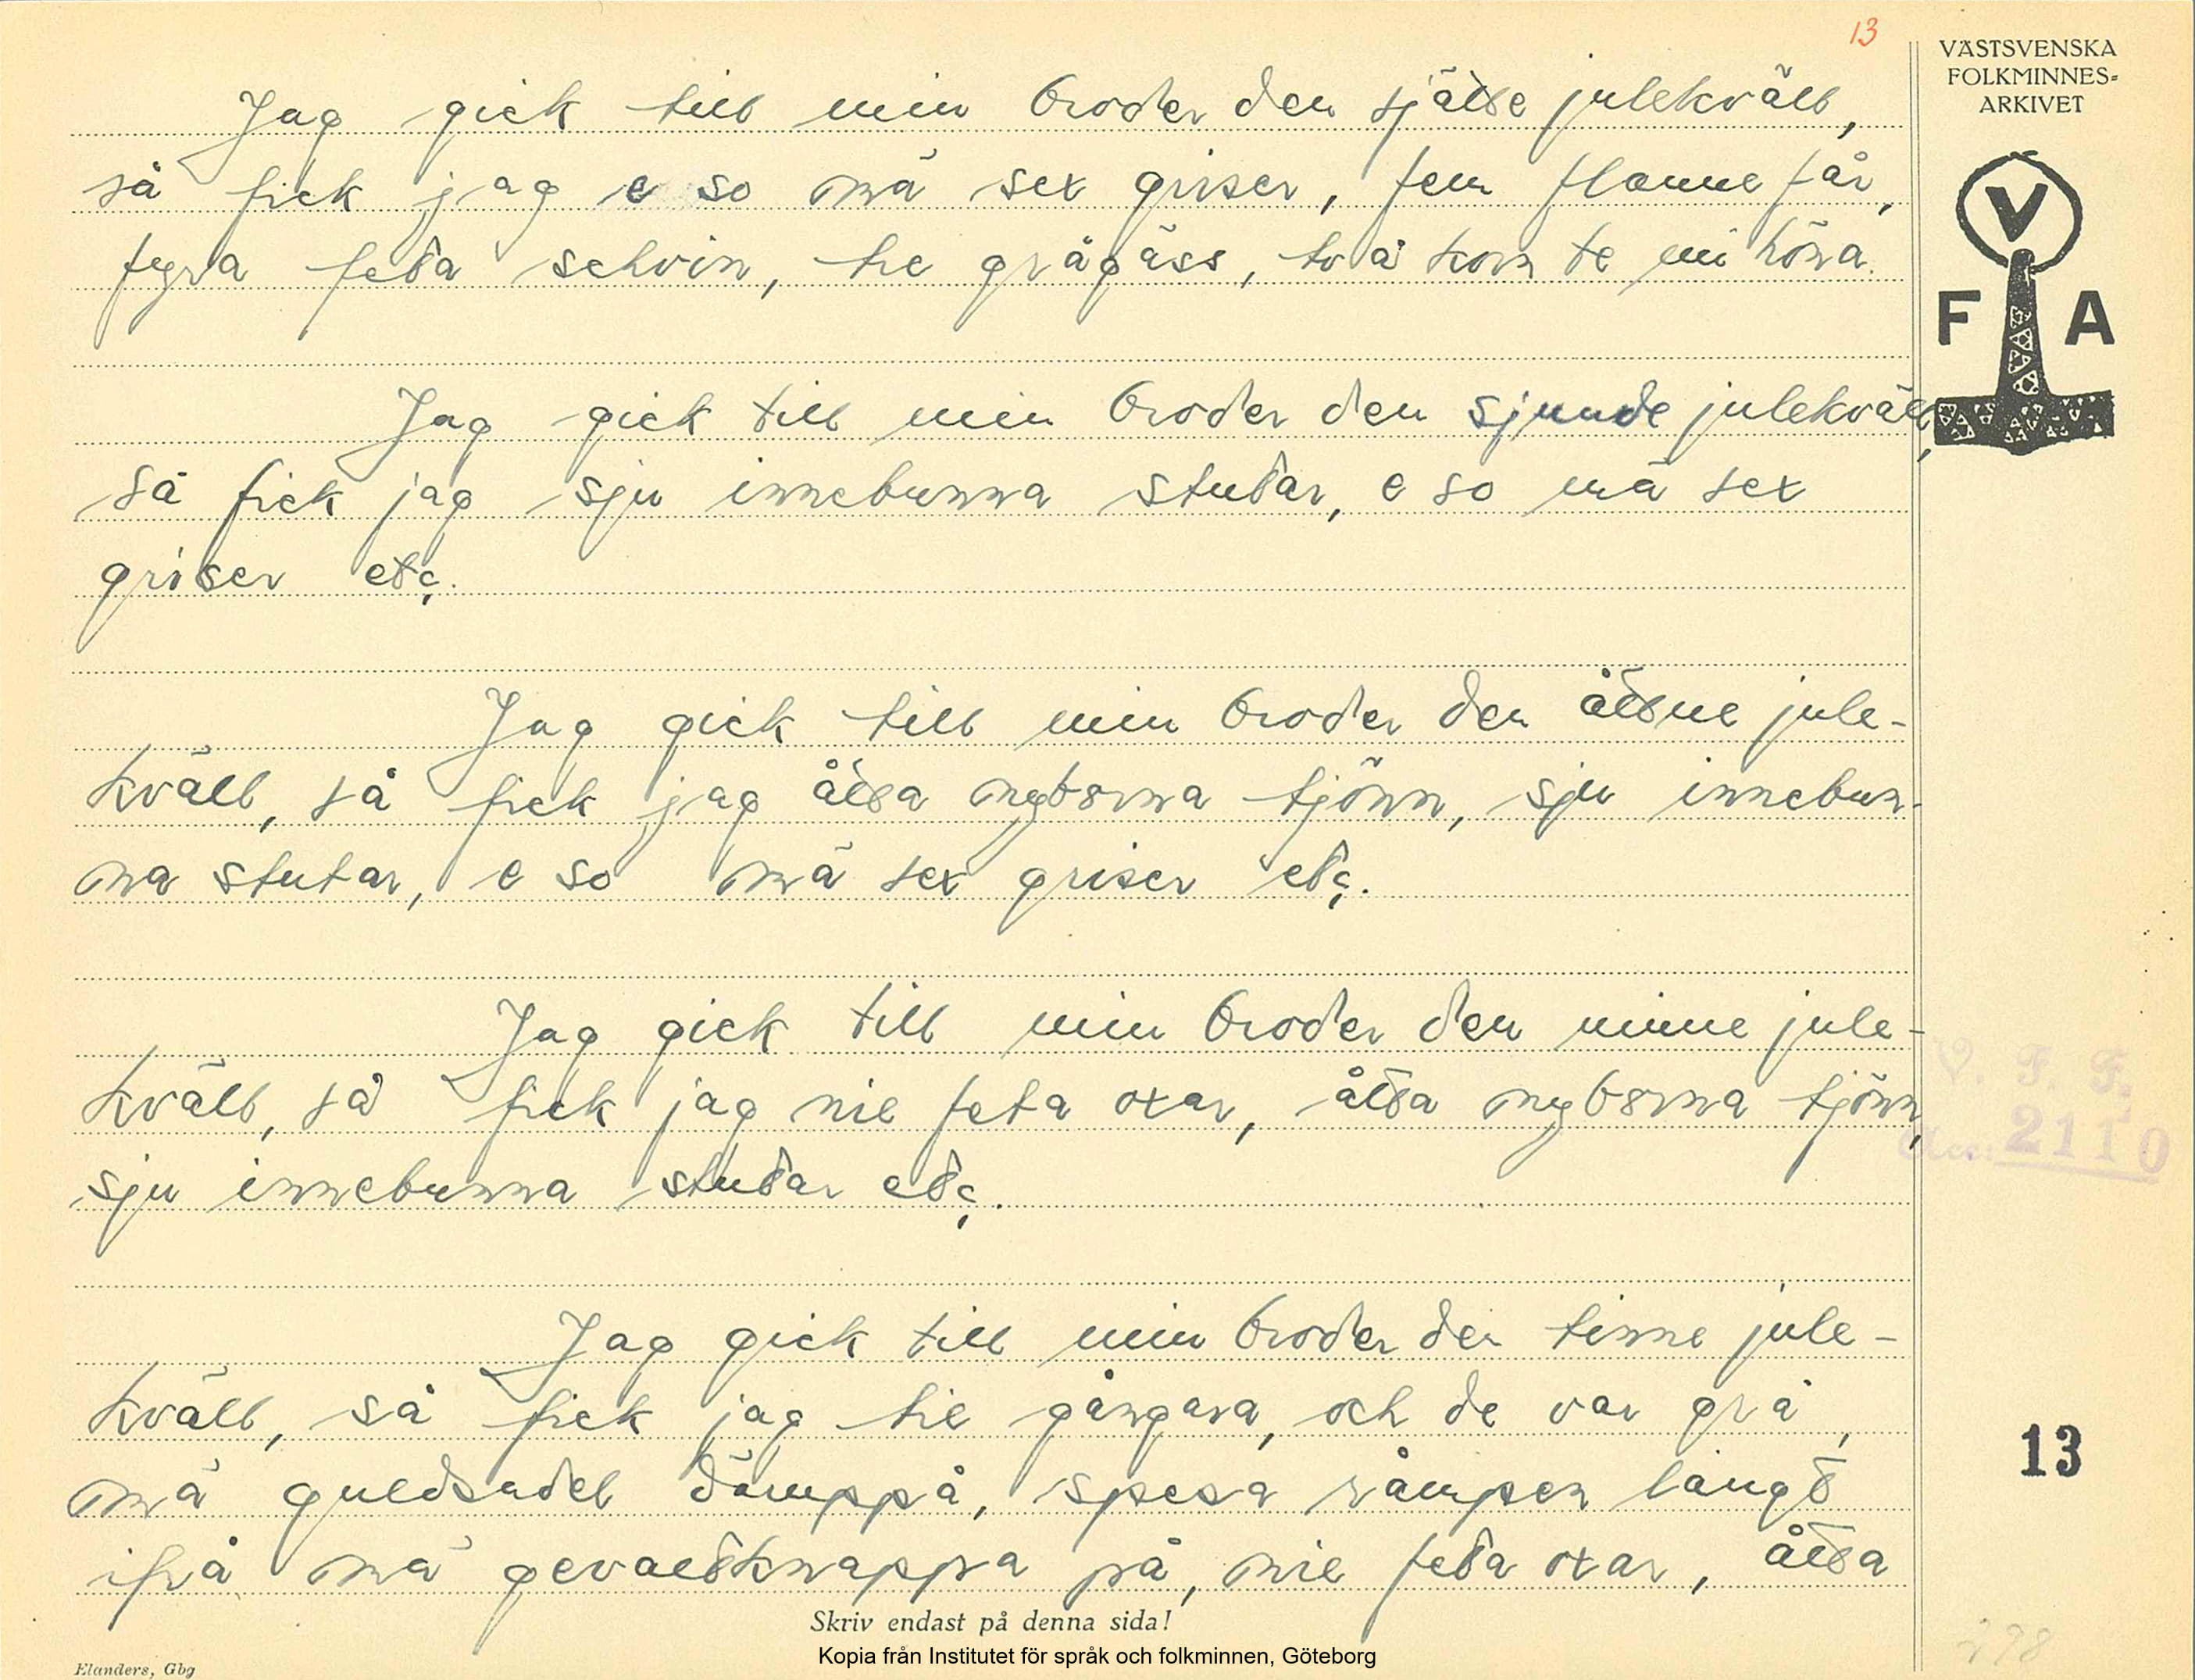 13
VÄSTSVENSKA
FOLKMINNES-
ARKIVET
V
F A
Jag gick till min broder den sjätte julekväll,
så fick jag e so mä sex griser, fem flamme får,
fyra feta schvin, tre grågäss, två korn te mi höna.
Jag gick till min broder den sjunde julekväll,
så fick jag sju innebunna stutar, e so mä sex
griser etc.
Jag gick till min broder den åttne jule-
kväll, så fick jag åtta nyborna tjönn, sju innebun-
na stutar, e so mä sex griser etc.
Jag gick till min broder den ninne jule-
kväll, så fick jag nie feta oxar, åtta nyborna tjönn,
sju innebunna stutar etc.
Jag gick till min broder den tinne jule-
kväll, så fick jag tie gångara, och de var grå,
mä guldsadel dämppå, spesa rämpen långt
ifrå mä gevaltknappa på, nie feta oxar, åtta
V. F. F.
Acc: 2110
13
298
Skriv endast på denna sida!
Kopia från Institutet för språk och folkminnen, Göteborg
Elanders, Gbg